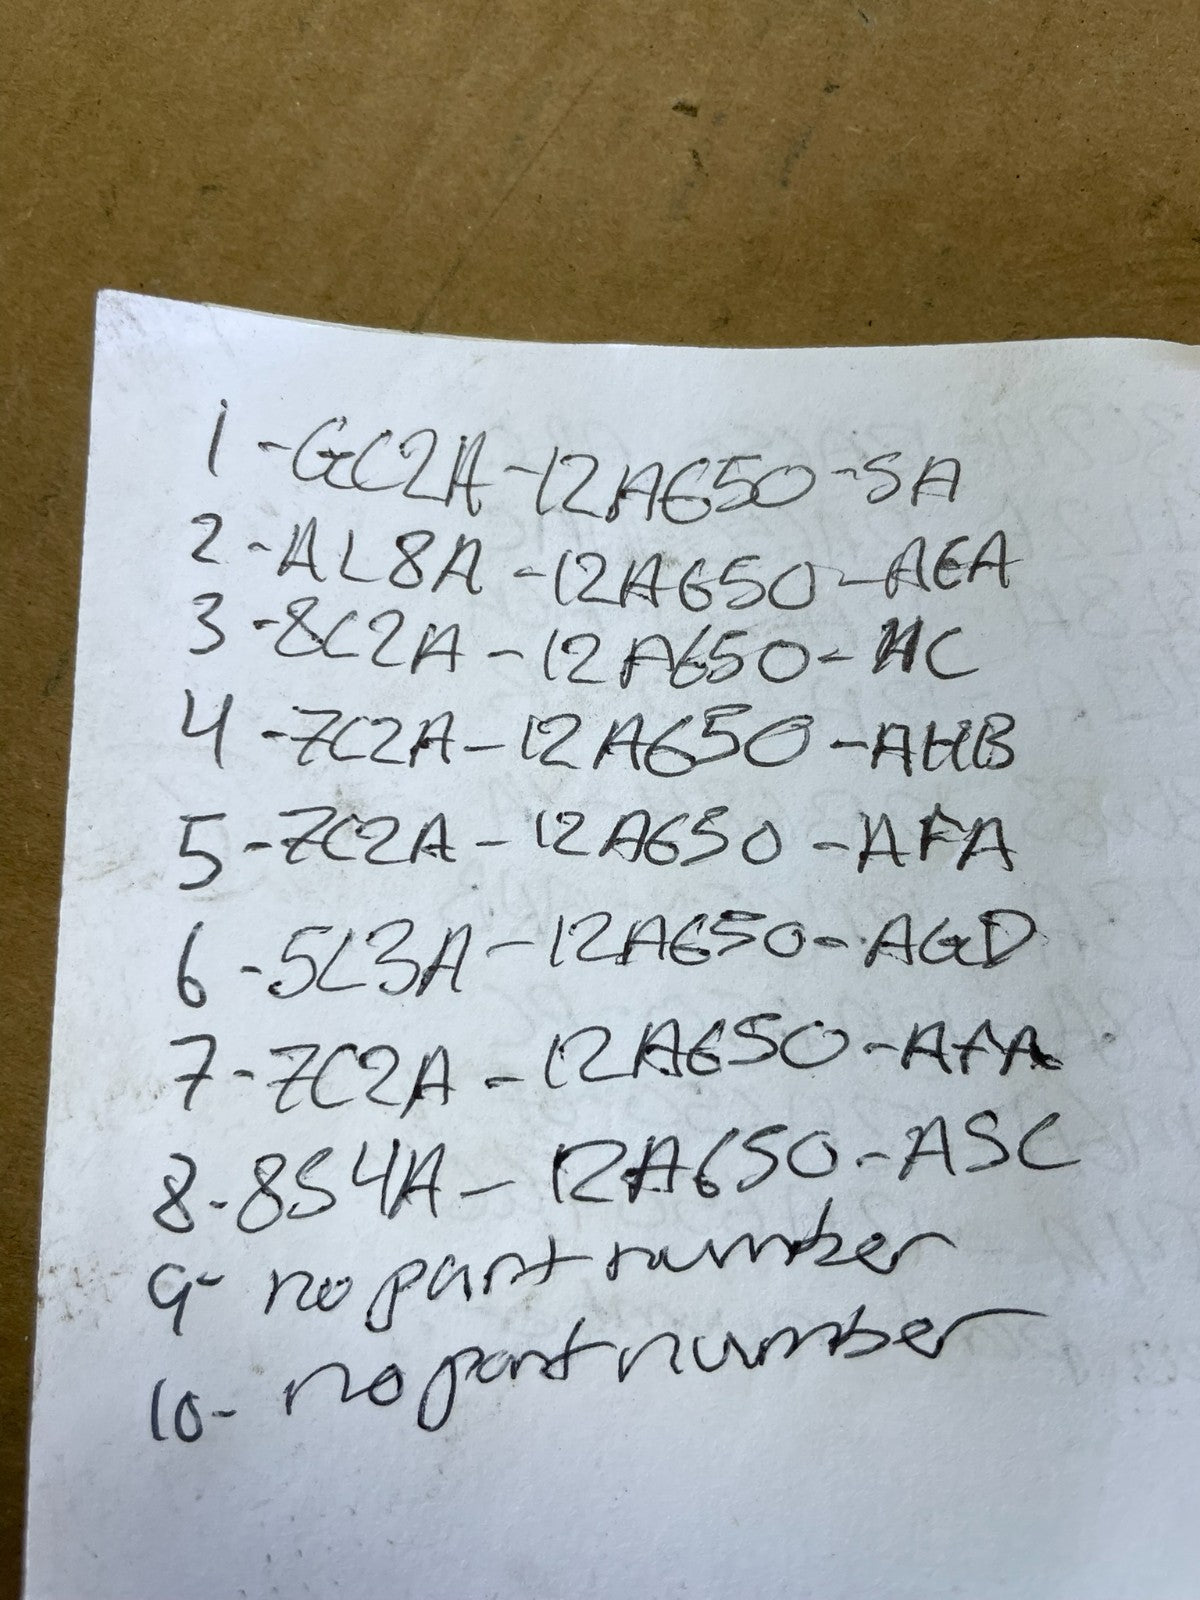 1 - GC2A - 12A650 - SA
2 - AL8A - 12A650 - AEA
3 - 8C2A - 12A650 - HC
4 - 7C2A - 12A650 - AHB
5 - 7C2A - 12A650 - AFA
6 - 5L3A - 12A650 - AGD
7 - 7C2A - 12A650 - AFA
8 - 8S4A - 12A650 - ASC
9 - no part number
10 - no part number